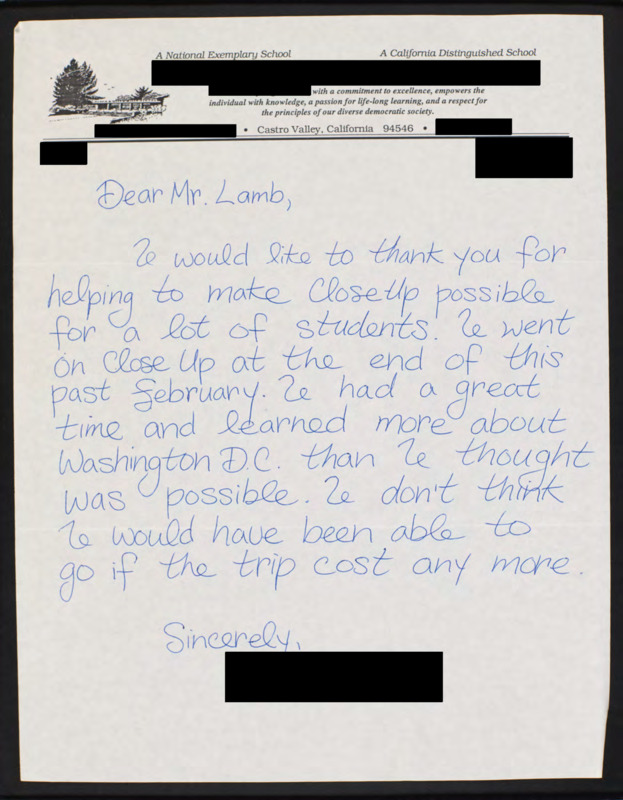 A National Exemplary School A California Distinguished School
with a commitment to excellence, empowers the
individual with knowledge, a passion for life-long learning, and a respect for
the principles of our diverse democratic society.
• Castro Valley, California 94546 •
Dear Mr. Lamb,
I would like to thank you for
helping to make CloseUp possible
for a lot of students. I went
on Close Up at the end of this
past February. I had a great
time and learned more about
Washington D.C. than I thought
was possible. I don't think
I would have been able to
go if the trip cost any more.
Sincerely,